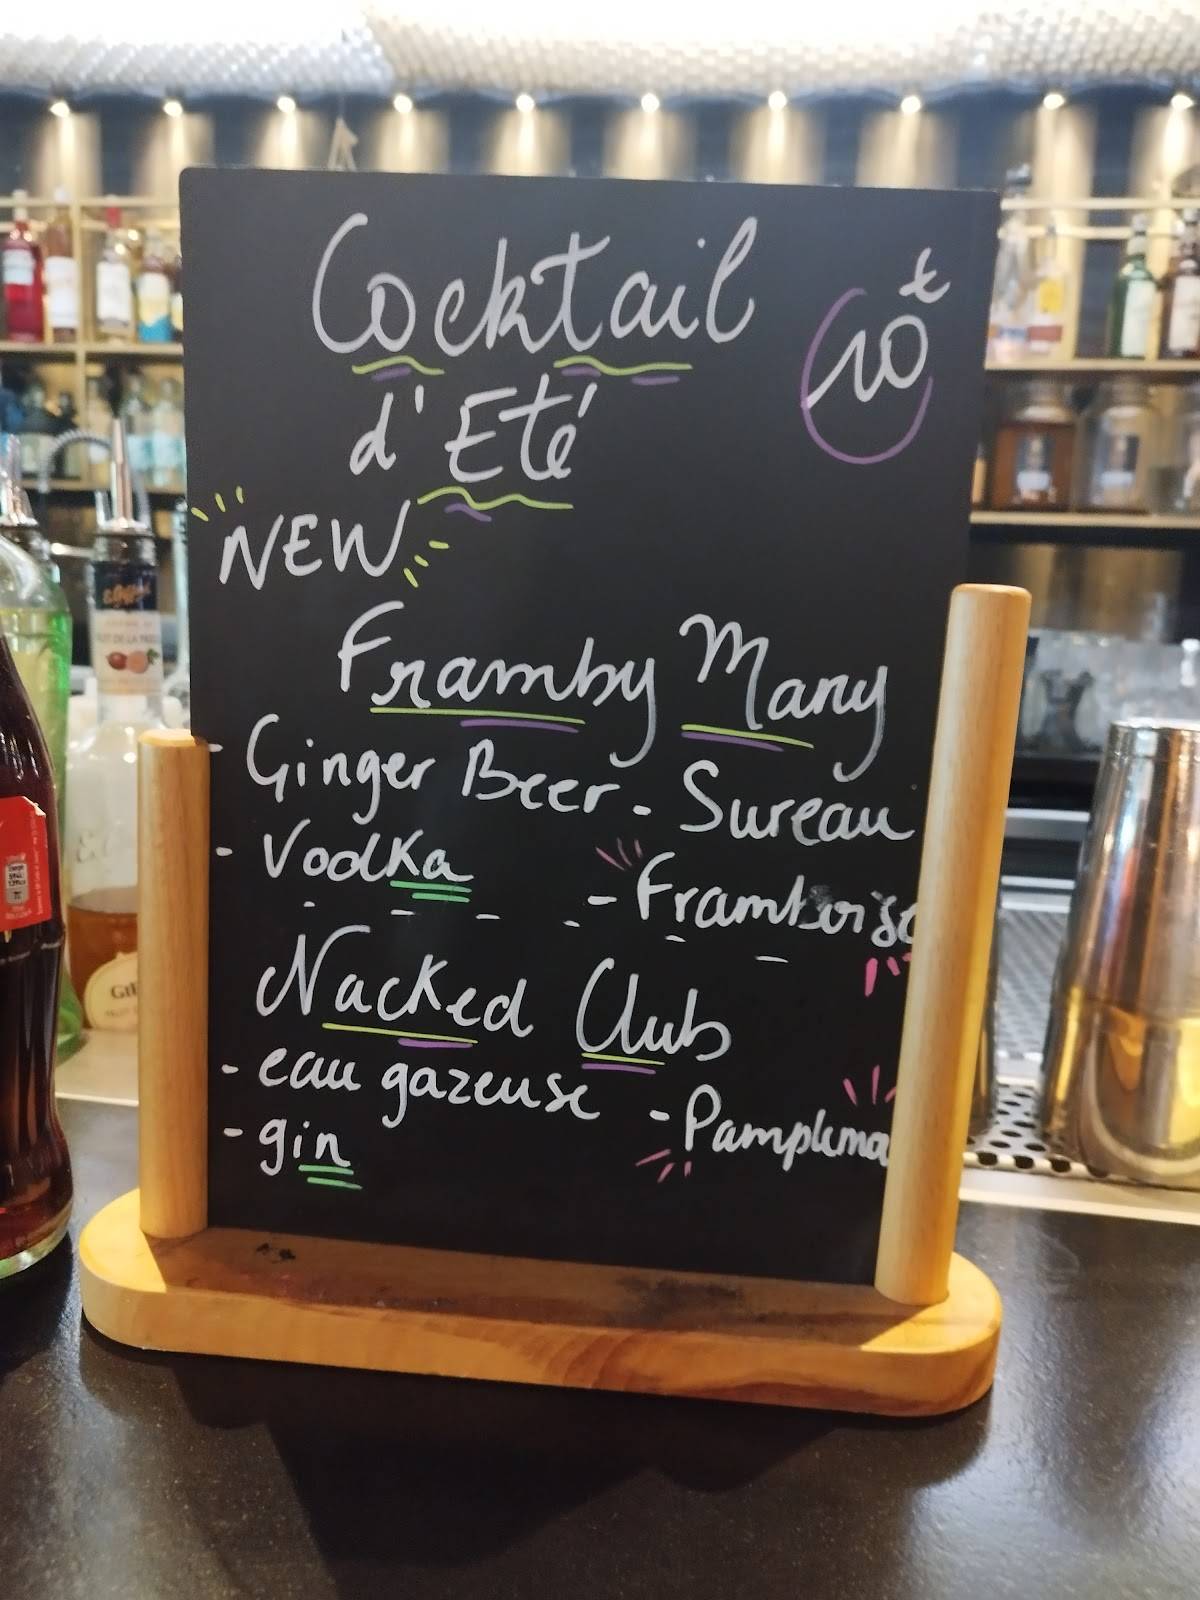 Cocktail
10€
d'Eté
NEW
Framby Mary
- Ginger Beer - Sureau
- Vodka - Framboise
Nacked Club
- eau gazeuse - Pamplema
- gin